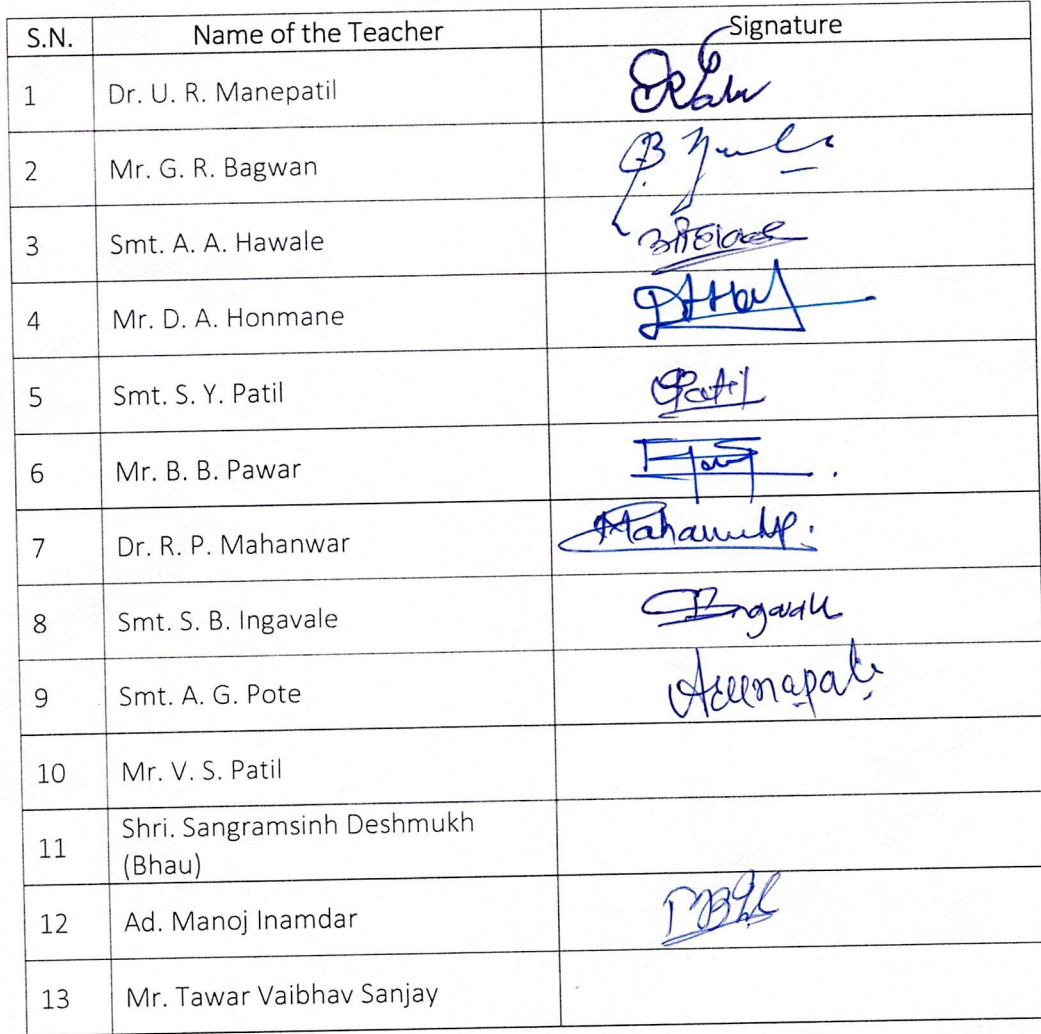 S.N. Name of the Teacher Signature
1 Dr. U. R. Manepatil
2 Mr. G. R. Bagwan
3 Smt. A. A. Hawale
4 Mr. D. A. Honmane
5 Smt. S. Y. Patil Patil
6 Mr. B. B. Pawar
7 Dr. R. P. Mahanwar
8 Smt. S. B. Ingavale
9 Smt. A. G. Pote
10 Mr. V. S. Patil
11 Shri. Sangramsinh Deshmukh
(Bhau)
12 Ad. Manoj Inamdar
13 Mr. Tawar Vaibhav Sanjay